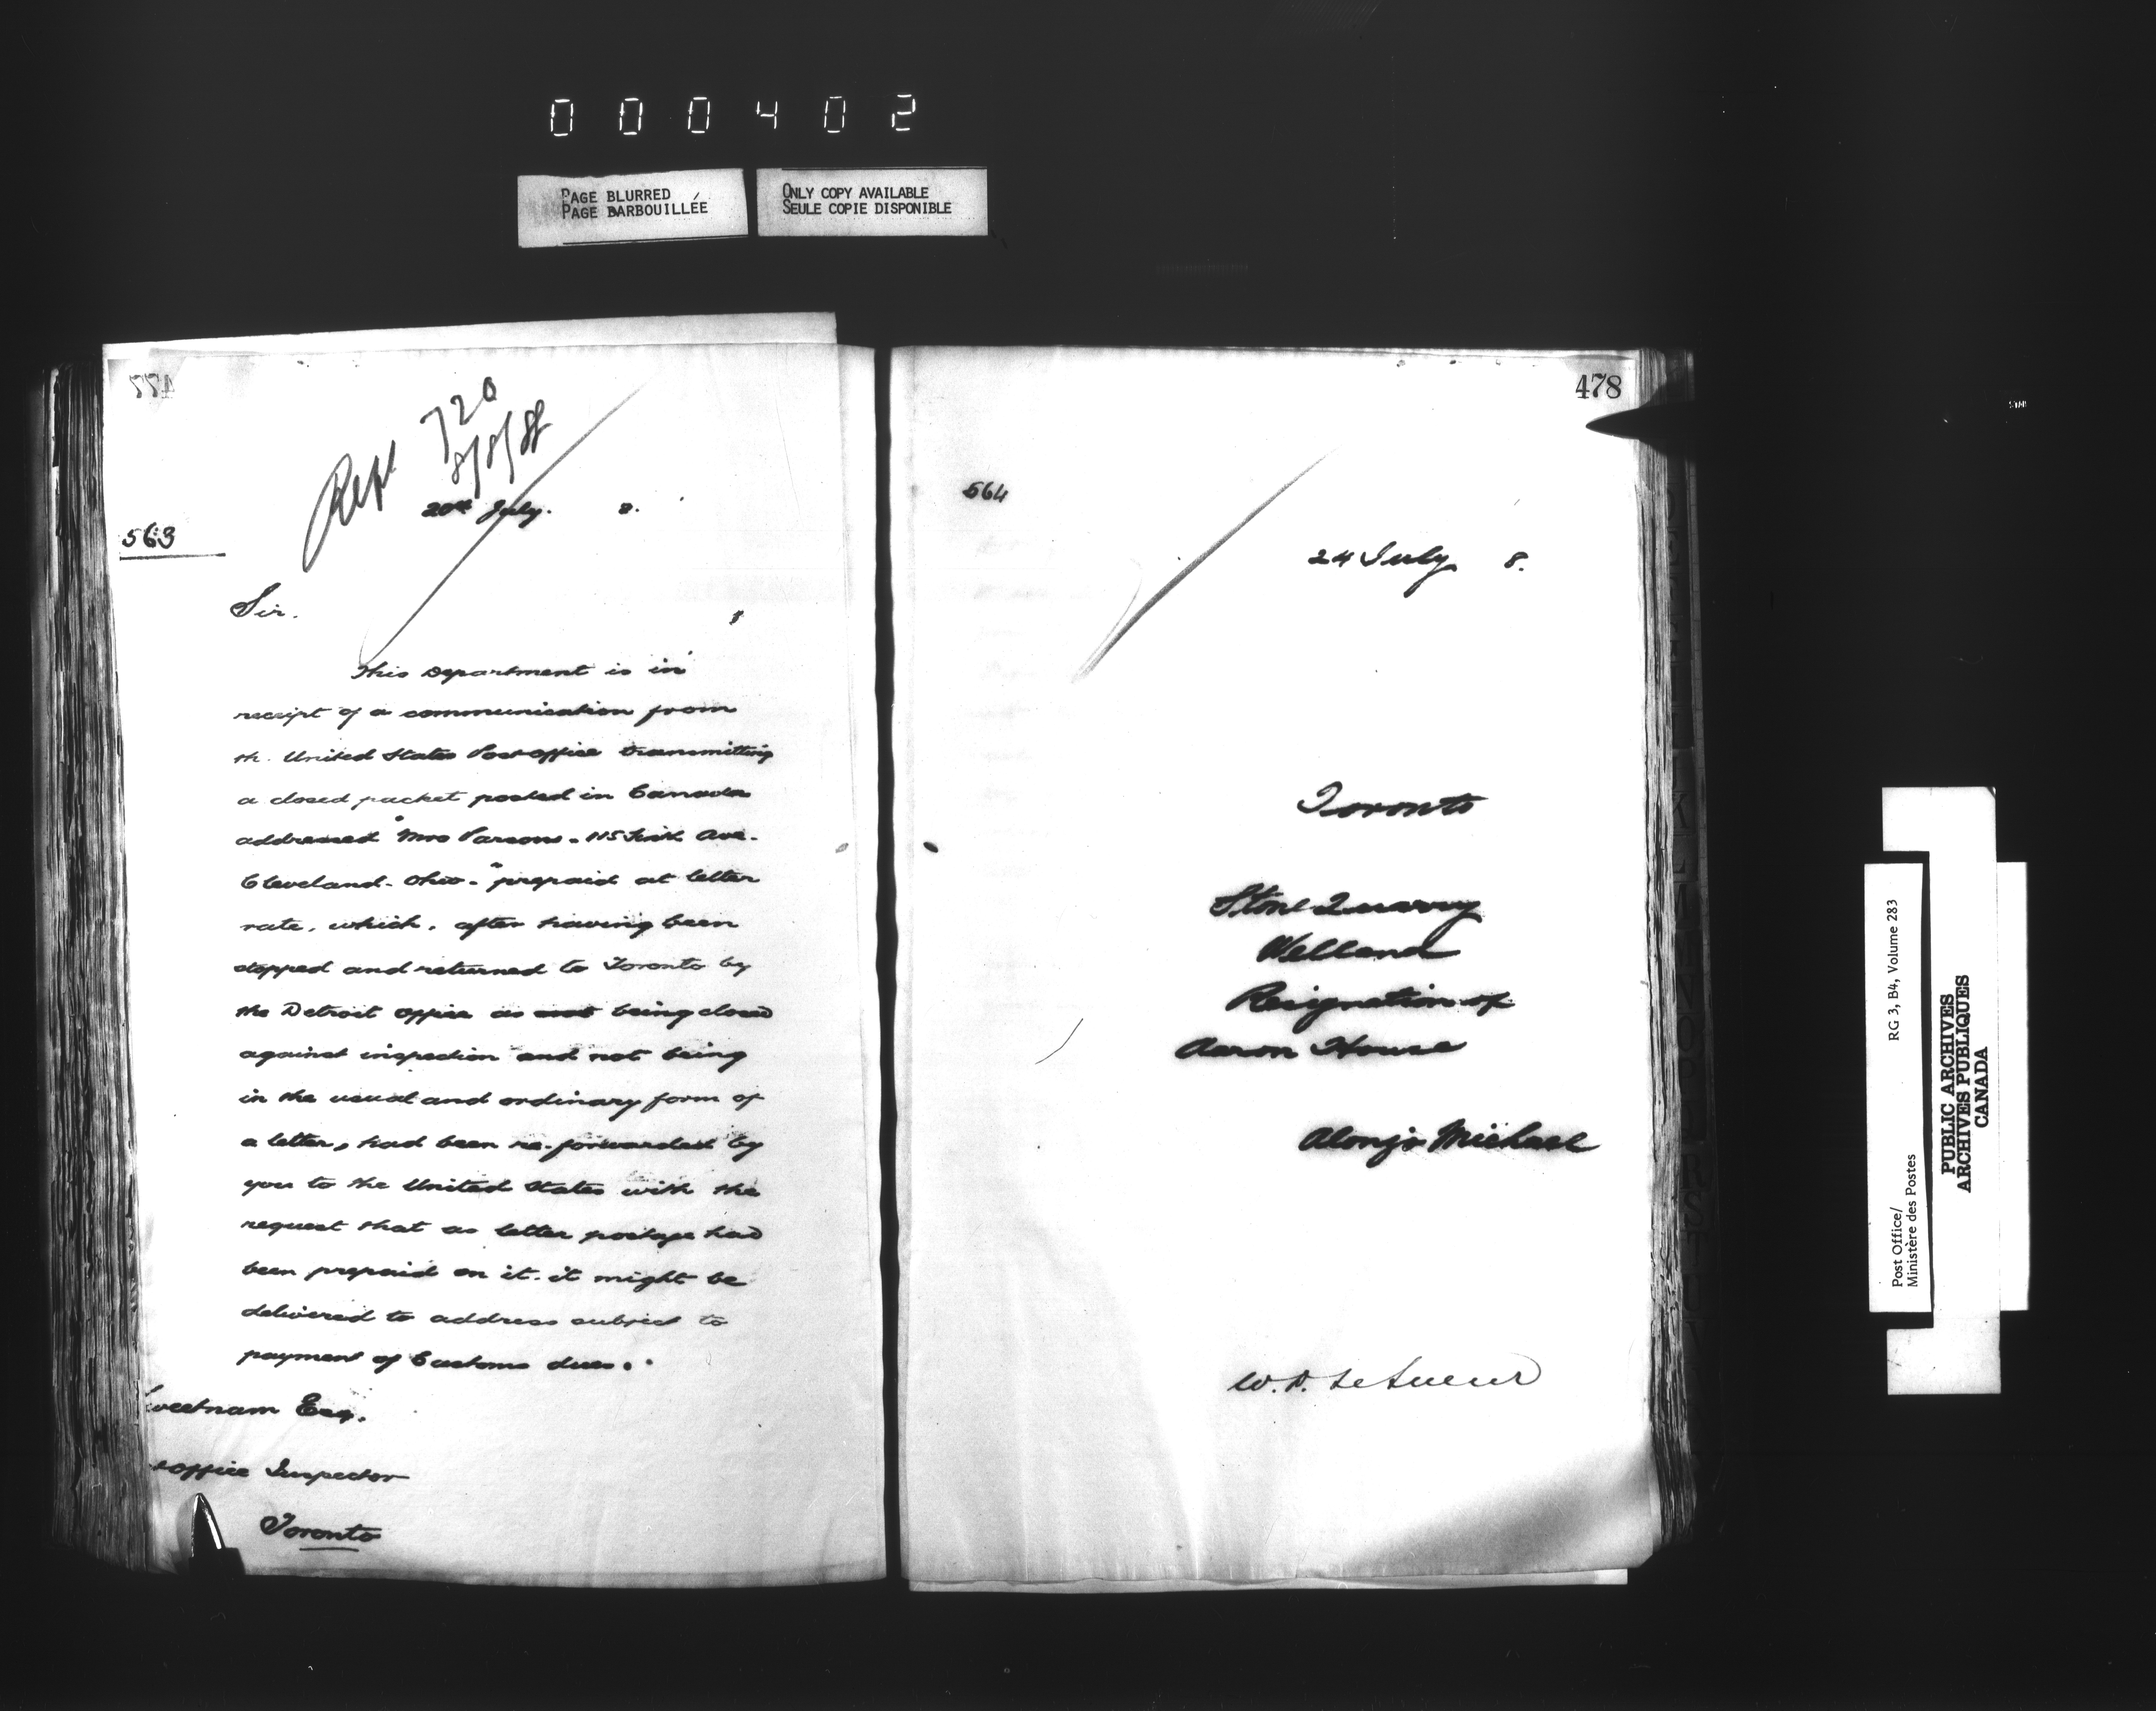 000402
PAGE BLURRED
PAGE BARBOUILLÉE
ONLY COPY AVAILABLE
SEULE COPIE DISPONIBLE
477
Rept 720
8/8/88
20th July. 8.
563
Sir.
This Department is in
receipt of a communication from
the United States Post office transmitting
a closed packet posted in Canada
addressed "Mrs Parsons - 115 Ave.
Cleveland - Ohio - " prepaid at letter
rate, which, after having been
stopped and returned to Toronto by
the Detroit office as being closed
against inspection and not being
in the usual and ordinary form of
a letter, had been re-forwarded by
you to the United States with the
request that as letter postage had
been prepaid on it, it might be
delivered to address subject to
payment of Customs dues.
Sweetnam Esq.
office Inspector
Toronto
478
564
24 July 8.
Toronto
Stone Quarry
Welland
Resignation of
Aaron House
Alonzo Michael
W. D. LeSueur
Post Office/
Ministère des Postes
RG 3, B4, Volume 283
PUBLIC ARCHIVES
ARCHIVES PUBLIQUES
CANADA